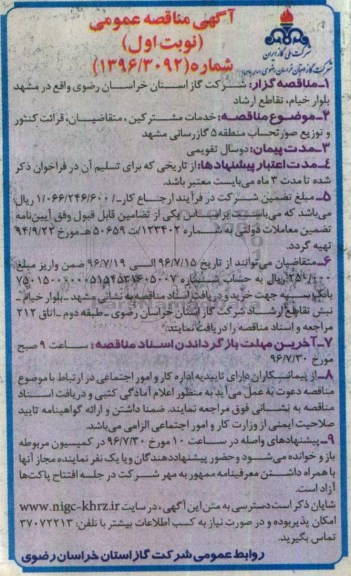 آگهی مناقصه عمومی
(نوبت اول)
شماره (۱۳۹۶/۳۰۹۲)
شرکت ملی گاز ایران
شرکت گاز استان خراسان رضوی (سهامی خاص)
۱-مناقصه گزار: شرکت گاز استان خراسان رضوی واقع در مشهد
بلوار خیام، تقاطع ارشاد
۲-موضوع مناقصه: خدمات مشترکین ، متقاضیان، قرائت کنتور
و توزیع صورتحساب منطقه ۵ گازرسانی مشهد
۳-مدت پیمان: دوسال تقویمی
۴-مدت اعتبار پیشنهادها: از تاریخی که برای تسلیم آن در فراخوان ذکر
شده تا مدت ۳ ماه می‌بایست معتبر باشد.
۵-مبلغ تضمین شرکت در فرآیند ارجاع کار -/۱/۰۶۶/۲۴۶/۶۰۰ ریال
می‌باشد که می‌بایست براساس یکی از تضامین قابل قبول وفق آیین‌نامه
تضمین معاملات دولتی به شماره ۱۲۳۴۰۲/ت۵۰۶۵۹ هـ مورخ ۹۴/۹/۲۲
تهیه گردد.
۶-متقاضیان می‌توانند از تاریخ ۹۶/۷/۱۵ الی ۹۶/۷/۱۹ ضمن واریز مبلغ
۲۵۰/۰۰۰ ریال به حساب شماره
بانک سپه جهت خرید و دریافت اسناد مناقصه به نشانی مشهد - بلوار خیام -
نبش تقاطع ارشاد شرکت گاز استان خراسان رضوی - طبقه دوم - اتاق ۲۱۲
مراجعه و اسناد مناقصه را دریافت نمایند.
۷-آخرین مهلت بازگرداندن اسناد مناقصه: ساعت ۹ صبح
مورخ ۹۶/۷/۳۰
۸-از پیمانکاران دارای تاییدیه اداره کار و امور اجتماعی در ارتباط با موضوع
مناقصه دعوت به عمل می‌آید به منظور اعلام آمادگی کتبی و دریافت اسناد
مناقصه به نشانی فوق مراجعه نمایند. ضمنا داشتن و ارائه گواهینامه تایید
صلاحیت ایمنی از وزارت کار و امور اجتماعی الزامی می‌باشد.
۹-پیشنهادهای واصله در ساعت ۱۰ مورخ ۹۶/۷/۳۰ در کمیسیون مربوطه
باز و خوانده می‌شود و حضور پیشنهاددهندگان و یا یک نفر نماینده مجاز آنها
با همراه داشتن معرفینامه ممهور به مهر شرکت در جلسه افتتاح پاکت‌ها
آزاد است.
شایان ذکر است دسترسی به متن این آگهی ، در سایت www.nigc-khrz.ir
امکان پذیر بوده و در صورت نیاز به کسب اطلاعات بیشتر با تلفن: ۳۷۰۷۲۲۱۳
تماس بگیرید.
روابط عمومی شرکت گاز استان خراسان رضوی